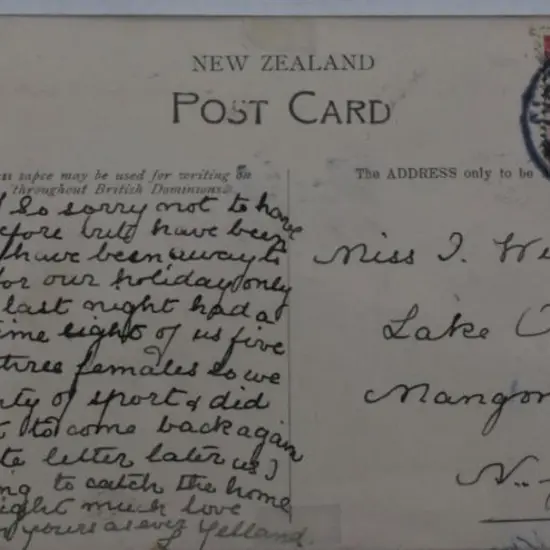 NEW ZEALAND
POST CARD
space may be used for writing on
throughout British Dominions
The ADDRESS only to be
So sorry not to have
but have been
have been away to
for our holiday only
last night had a
time eight of us five
three females so we
of sport & did
to come back again
letter later as I
to catch the home
much love
yours as ever Yelland.
Miss I. We
Lake O
Mangon
N.